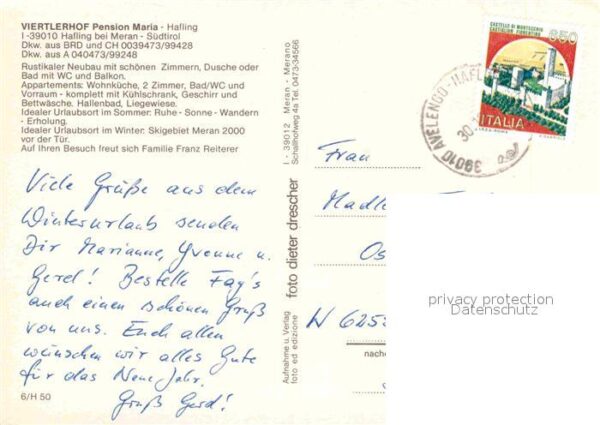 VIERTLERHOF Pension Maria - Hafling
I -39010 Hafling bei Meran - Südtirol
Dkw. aus BRD und CH 0039473/99428
Dkw. aus A 040473/99248
Rustikaler Neubau mit schönen Zimmern, Dusche oder
Bad mit WC und Balkon.
Appartements: Wohnküche, 2 Zimmer, Bad/WC und
Vorraum - komplett mit Kühlschrank, Geschirr und
Bettwäsche. Hallenbad, Liegewiese.
Idealer Urlaubsort im Sommer: Ruhe - Sonne - Wandern
- Erholung.
Idealer Urlaubsort im Winter: Skigebiet Meran 2000
vor der Tür.
Auf Ihren Besuch freut sich Familie Franz Reiterer
Viele Grüße aus dem
Winterurlaub senden
Dir Marianne, Yvonne u.
Gerd! Bestelle Fay's
auch einen schönen Gruß
von uns. Euch allen
wünschen wir alles Gute
für das Neue Jahr.
Gruß Gerd!
6/H 50
I - 39012 Meran - Merano
Schallhofweg 4a Tel. 0473-34566
foto dieter drescher
Aufnahme u. Verlag
foto ed edizione
CASTELLO DI MONTECCHIO
CASTIGLION FIORENTINO
650
ITALIA
39010 AVELENGO - HAFL
30.
Frau
Madl
Os
W 625
nach
privacy protection
Datenschutz